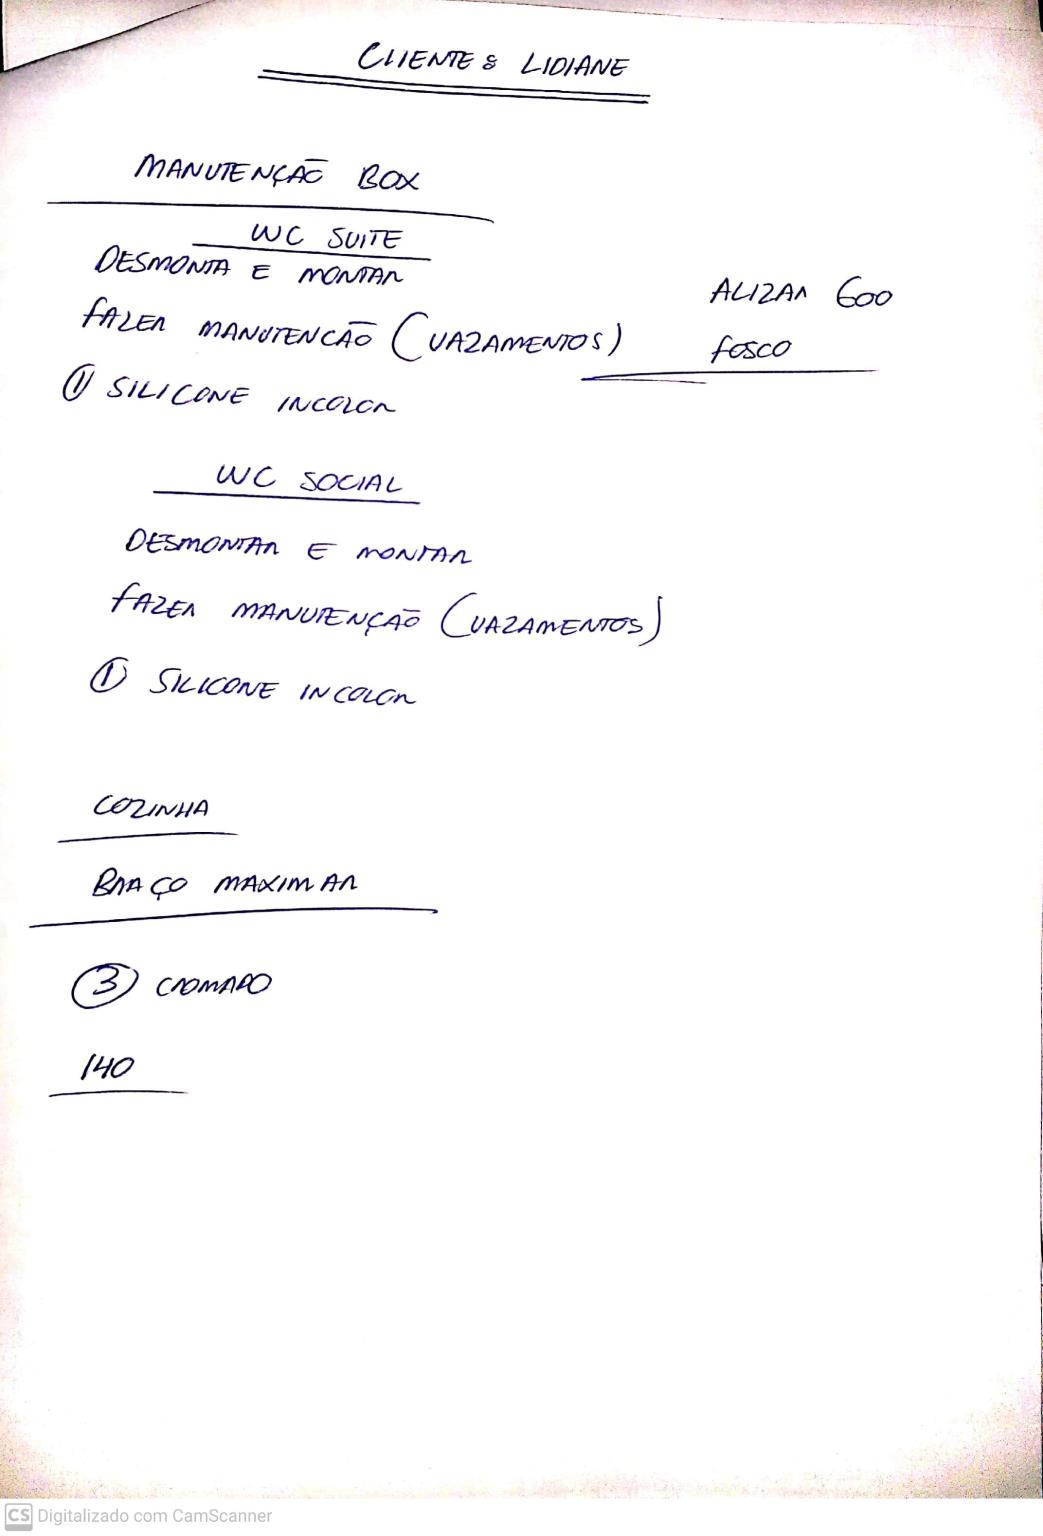 CLIENTE: LIDIANE
MANUTENÇÃO BOX
WC SUITE
DESMONTA E MONTAR
FAZER MANUTENCÃO (VAZAMENTOS)
① SILICONE INCOLOR
ALIZAR 600
FOSCO
WC SOCIAL
DESMONTAR E MONTAR
FAZER MANUTENÇÃO (VAZAMENTOS)
① SILICONE INCOLOR
COZINHA
BRAÇO MAXIMAR
③ CROMADO
140
CS Digitalizado com CamScanner